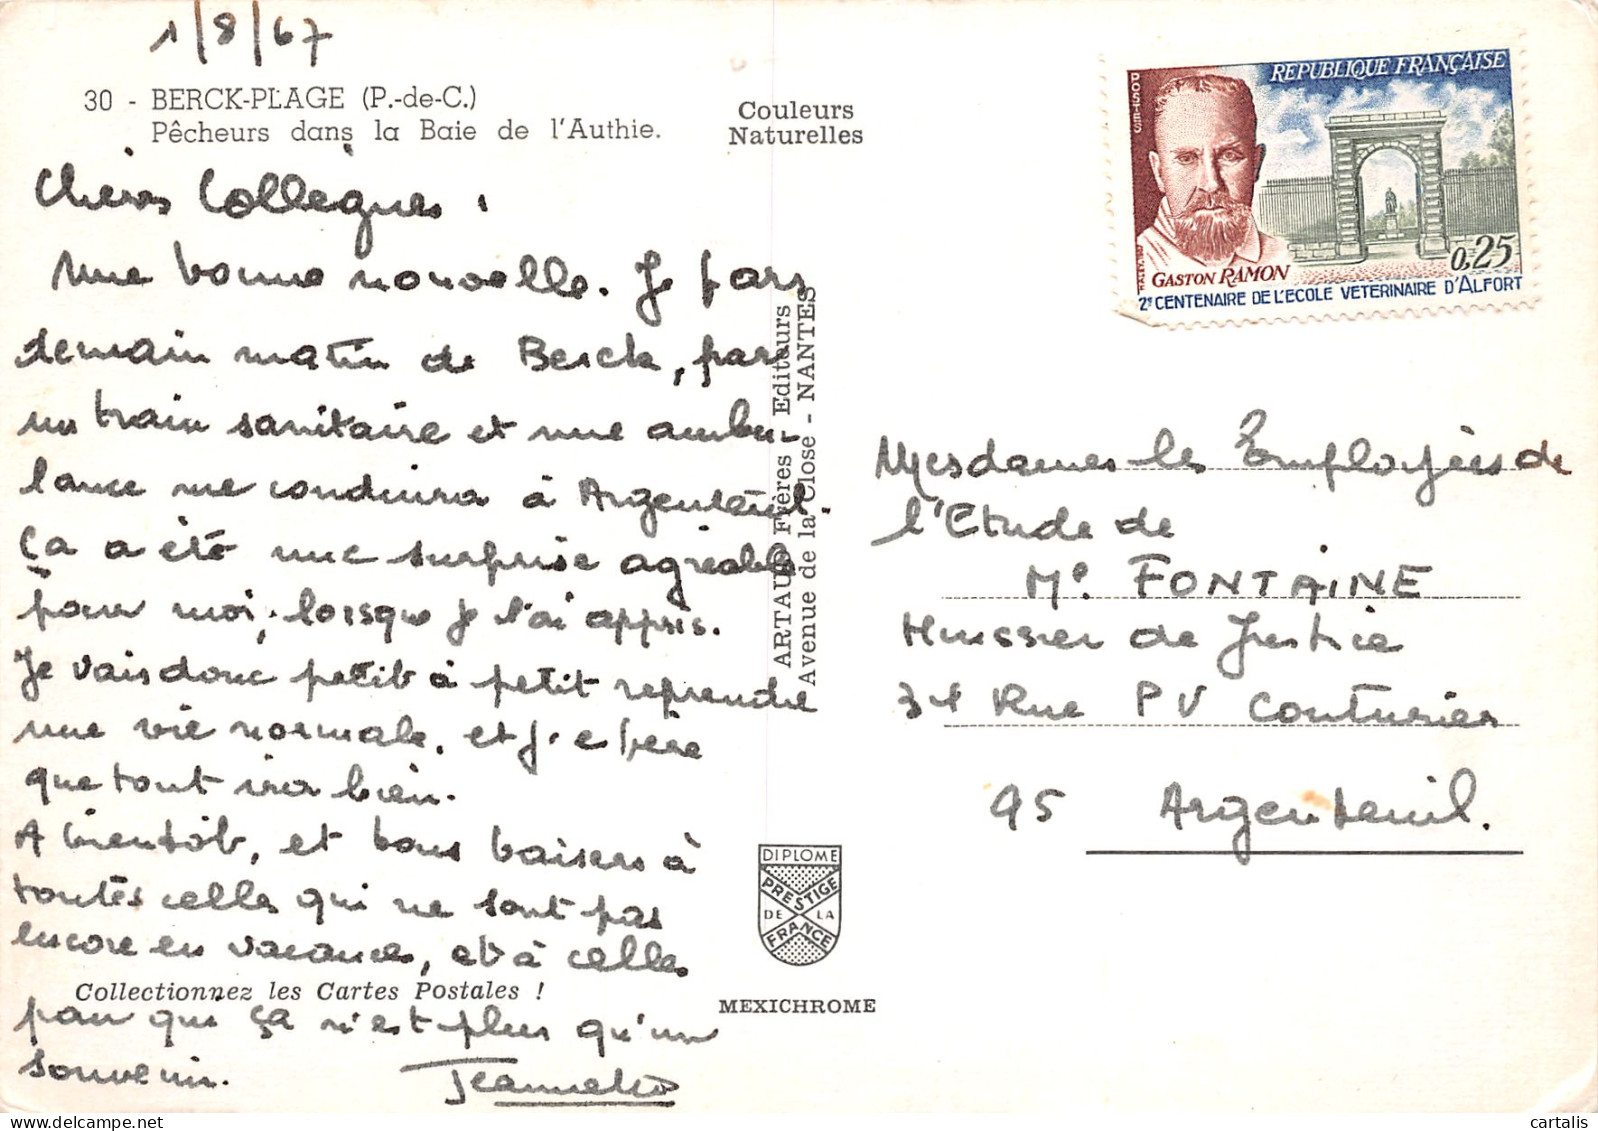 1/8/67
30 - BERCK-PLAGE (P.-de-C.)
Pêcheurs dans la Baie de l'Authie.
Couleurs
Naturelles
Chères Collègues :
Une bonne nouvelle. Je pars
demain matin de Berck, par
un train sanitaire et une ambu-
lance me conduira à Argenteuil.
Ça a été une surprise agréable
pour moi, lorsque je l'ai appris.
Je vais donc petit à petit reprendre
une vie normale, et j'espère
que tout ira bien.
A bientôt, et bons baisers à
toutes celles qui ne sont pas
encore en vacances, et à celles
Collectionnez les Cartes Postales !
pour qui ça n'est plus qu'un
souvenir.
Jeannette
ARTAUD Frères - Editeurs
Avenue de la Close - NANTES
DIPLOME
PRESTIGE
DE LA
FRANCE
MEXICHROME
POSTES
REPUBLIQUE FRANÇAISE
0,25
GASTON RAMON
2e CENTENAIRE DE L'ECOLE VETERINAIRE D'ALFORT
Mesdames les Employées de
l'Etude de
Me FONTAINE
Huissier de Justice
31 Rue P V Couturier
95 Argenteuil.
cartalis
cartalis.delcampe.net